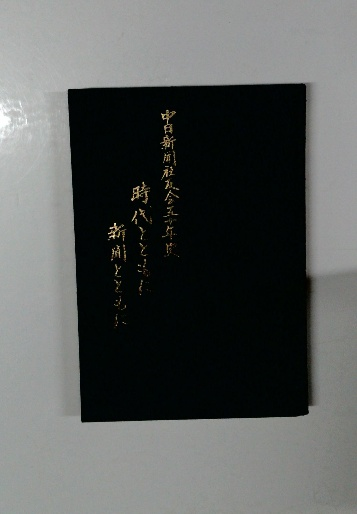 中日新聞社友会五十年史
時代とともに
新聞とともに